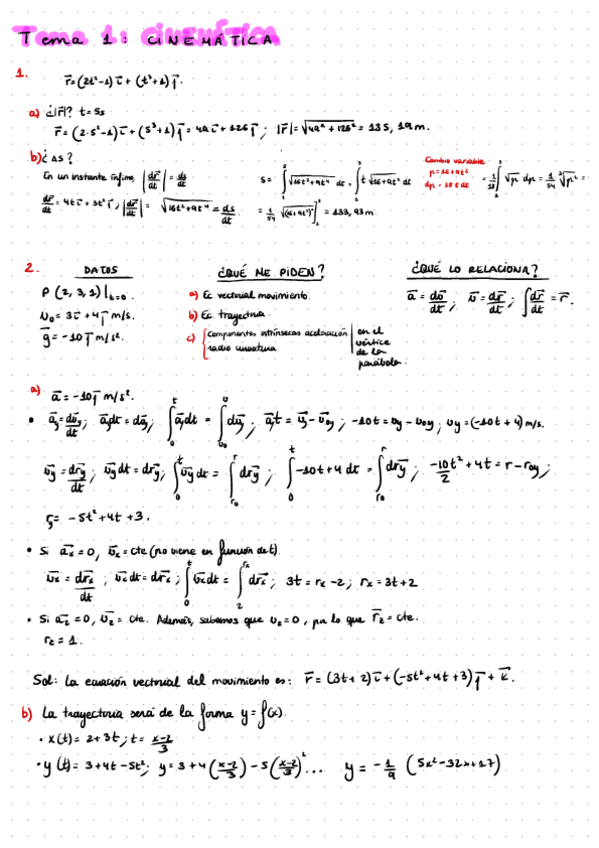 Tema 1: CINEMÁTICA
1. r⃗=(2t²-1)i⃗ + (t³+1)j⃗.
a) ¿|r⃗|? t=5s
r⃗=(2·5²-1)i⃗+(5³+1)j⃗=49i⃗+126j⃗; |r⃗|=√(49²+126²)=135,19m.
b) ¿Δs?
En un instante ínfimo, |dr⃗/dt|=ds/dt
dr⃗/dt=4ti⃗+3t²j⃗; |dr⃗/dt|=√(16t²+9t⁴)=ds/dt
s=∫√(16t²+9t⁴) dt=∫t√(16+9t²) dt
Cambio variable
p=16+9t²
dp=18tdt
=1/18∫√p dp=1/54
=1/54 =133,93m
2. DATOS ¿QUÉ ME PIDEN? ¿QUÉ LO RELACIONA?
P(2,3,1)|t=0. a) Ec vectorial movimiento. a⃗=dv⃗/dt; v⃗=dr⃗/dt; ∫dr⃗/dt=r⃗.
v₀=3i⃗+4j⃗ m/s. b) Ec trayectoria
g⃗=-10j⃗ m/s². c) Componentes intrínsecas aceleración
radio curvatura
en el
vértice
de la
parábola
a) a⃗=-10j⃗ m/s².
• a⃗y=dv⃗y/dt; a⃗ydt=dv⃗y; ∫₀ᵗa⃗ydt=∫dv⃗y; a⃗yt=v⃗y-v⃗₀y; -10t=vy-v₀y; vy=(-10t+4)m/s.
v⃗y=dr⃗y/dt; v⃗ydt=dr⃗y; ∫₀ᵗv⃗ydt=∫dr⃗y; ∫₀ᵗ-10t+4 dt=∫dr⃗y; -10t²/2+4t=r-r₀y;
ry=-5t²+4t+3.
• Si a⃗x=0, v⃗x=cte (no viene en función de t).
v⃗x=dr⃗x/dt; v⃗xdt=dr⃗x; ∫₀ᵗv⃗xdt=∫₂dr⃗x; 3t=rx-2; rx=3t+2
• Si a⃗z=0, v⃗z=cte. Además, sabemos que vz=0, por lo que r⃗z=cte.
rz=1.
Sol: La ecuación vectorial del movimiento es: r⃗=(3t+2)i⃗+(-5t²+4t+3)j⃗+k⃗.
b) La trayectoria será de la forma y=f(x).
• x(t)=2+3t; t=(x-2)/3
• y(t)=3+4t-5t²; y=3+4((x-2)/3)-5((x-2)/3)²... y=-1/9(5x²-32x+17)